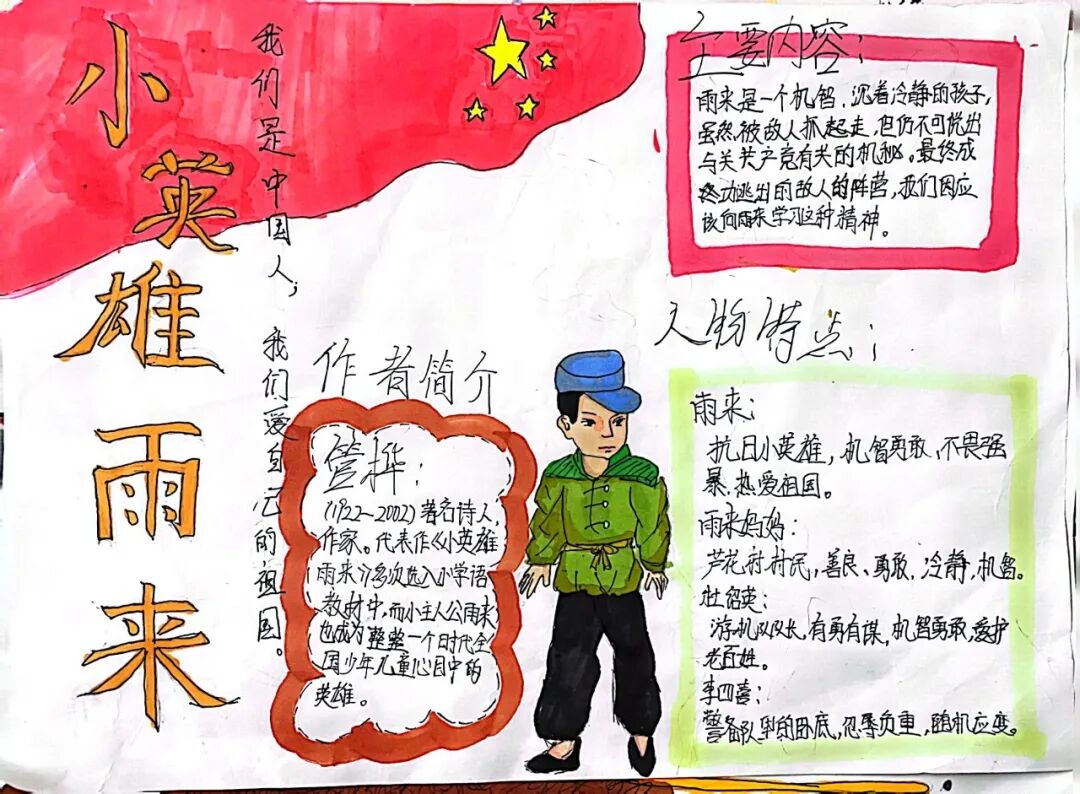 小英雄雨来
我们是中国人，我们爱自己的祖国。
主要内容：
雨来是一个机智、沉着冷静的孩子，
虽然被敌人抓起走，但仍不可说出
与关共产竞有关的机秘。最终成
终功逃出的敌人的阵营，我们因应
该向雨来学习这种精神。
作者简介
管桦：
（1922~2002）著名诗人，
作家。代表作《小英雄
雨来》多次选入小学语
教材中，而小主人公雨来
也成为整整一个时代全
国少年儿童心目中的
英雄。
人物特点：
雨来：
抗日小英雄，机智勇敢、不畏强
暴、热爱祖国。
雨来妈妈：
芦花村村民，善良、勇敢，冷静，机智。
杜绍英：
游机队队长，有勇有谋，机智勇敢，爱护
老百姓。
李四喜：
警备队的卧底，忍辱负重，随机应变。